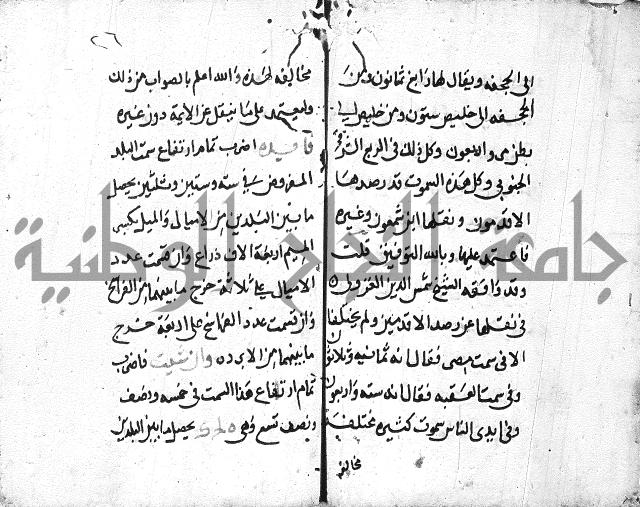 الى الجحفه ويقال لها ذا بغ ثمانون ومن
الجحفه الى خليص ستون ومن خليص الى
بطن مر واربعون وكل ذلك في الربع الشرقي
الجنوبي وكل هذه السموت قد رصدها
الاقدمون ونقلها ابن شمعون وغيره
فاعتمد عليها وبالله التوفيق قلت
وقد وافقه الشيخ شمس الدين الغزولي
في نقلها عن رصد الاقدمين ولم يختلفا
الا في سمت مصر فقال انه ثمانيه وثلاثون
وفي سمت العقبه فقال انه سته واربعون
وفي ايدي الناس سموت كثيره مختلفة
مخالفه
٢٦
مخالفه لهذه والله اعلم بالصواب من ذلك
وليعتمد على ما ينقل عن الائمة دون غيره
فايده اضرب تمام ارتفاع سمت البلد
المفروض في سته وستين وثلثين يحصل
ما بين البلدين من الاميال والميل
اربعة الاف ذراع وان قسمت عدد
الاميال على ثلاثة خرج ما بينهما من الفراسخ
وان قسمت عدد الفراسخ على اربعة خرج
ما بينهما من الابرده وان شيت فاضرب
تمام ارتفاع هذا السمت في خمسه ونصف
ونصف تسع وهي يحصل ما بين البلدين
جامعة النجاح الوطنية